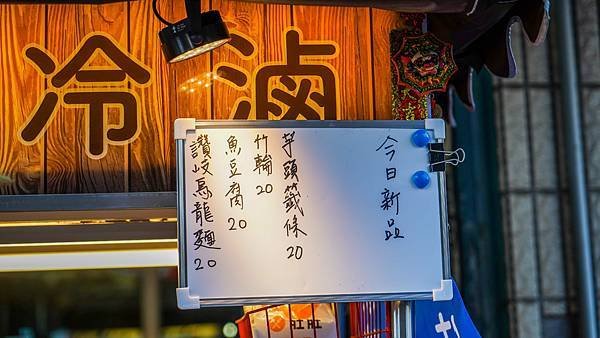 冷滷
今日新品
芋頭籤條 20
竹輪 20
魚豆腐 20
讚岐烏龍麵 20